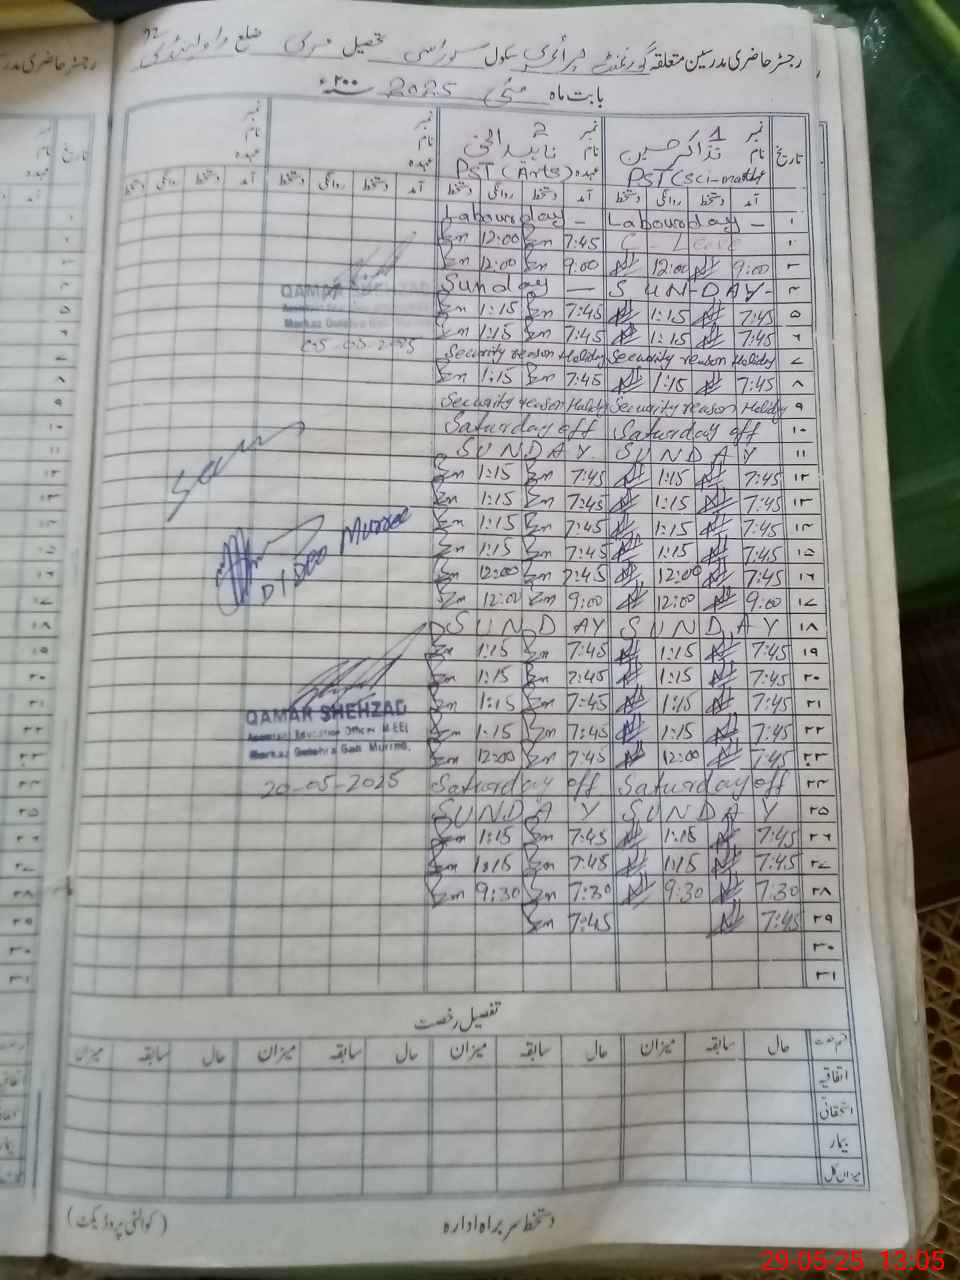 92
رجسٹر حاضری مدرسین متعلقہ گورنمنٹ پرائمری سکول سوراسی تحصیل مری ضلع راولپنڈی
بابت ماہ مئی 2025 ۲۰۰ء
تاریخ نمبر 1 نمبر 2 نمبر نمبر
نام تذاکر حسین نام ناہید اختر نام نام
عہدہ PST (Sci-math) عہدہ PST (Arts) عہدہ عہدہ
آمد دستخط روانگی دستخط آمد دستخط روانگی دستخط آمد دستخط روانگی دستخط آمد دستخط روانگی دستخط
۱ Labour day – Labour day –
۲ C - Leave 7:45 12:00
۳ 9:00 12:00 9:00 12:00
۴ SUN-DAY- Sunday —
۵ 7:45 1:15 7:45 1:15
۶ 7:45 1:15 7:45 1:15
۷ Security reason Holiday Security reason Holiday
۸ 7:45 1:15 7:45 1:15
۹ Security reason Holiday Security reason Holiday
۱۰ Saturday off Saturday off
۱۱ SUNDAY SUNDAY
۱۲ 7:45 1:15 7:45 1:15
۱۳ 7:45 1:15 7:45 1:15
۱۴ 7:45 1:15 7:45 1:15
۱۵ 7:45 1:15 7:45 1:15
۱۶ 7:45 12:00 7:45 12:00
۱۷ 9:00 12:00 9:00 12:00
۱۸ SUNDAY SUNDAY
۱۹ 7:45 1:15 7:45 1:15
۲۰ 7:45 1:15 7:45 1:15
۲۱ 7:45 1:15 7:45 1:15
۲۲ 7:45 1:15 7:45 1:15
۲۳ 7:45 12:00 7:45 12:00
۲۴ Saturday off Saturday off
۲۵ SUNDAY SUNDAY
۲۶ 7:45 1:15 7:45 1:15
۲۷ 7:45 1:15 7:45 1:15
۲۸ 7:30 9:30 7:30 9:30
۲۹ 7:45 7:45
۳۰
۳۱
QAMAR SHEHZAD
05-05-2025
Seen
DI DEO Murree
QAMAR SHEHZAD
Assistant Education Officer M-EE
Markaz Gulehra Gali Murree.
20-05-2025
تفصیل رخصت
قسم رخصت حال سابقہ میزان حال سابقہ میزان حال سابقہ میزان حال سابقہ میزان
اتفاقیہ
استحقاقی
بیمار
میزان کل
دستخط سربراہ ادارہ
(کوالٹی پروڈیکٹ)
29-05-25 13:05